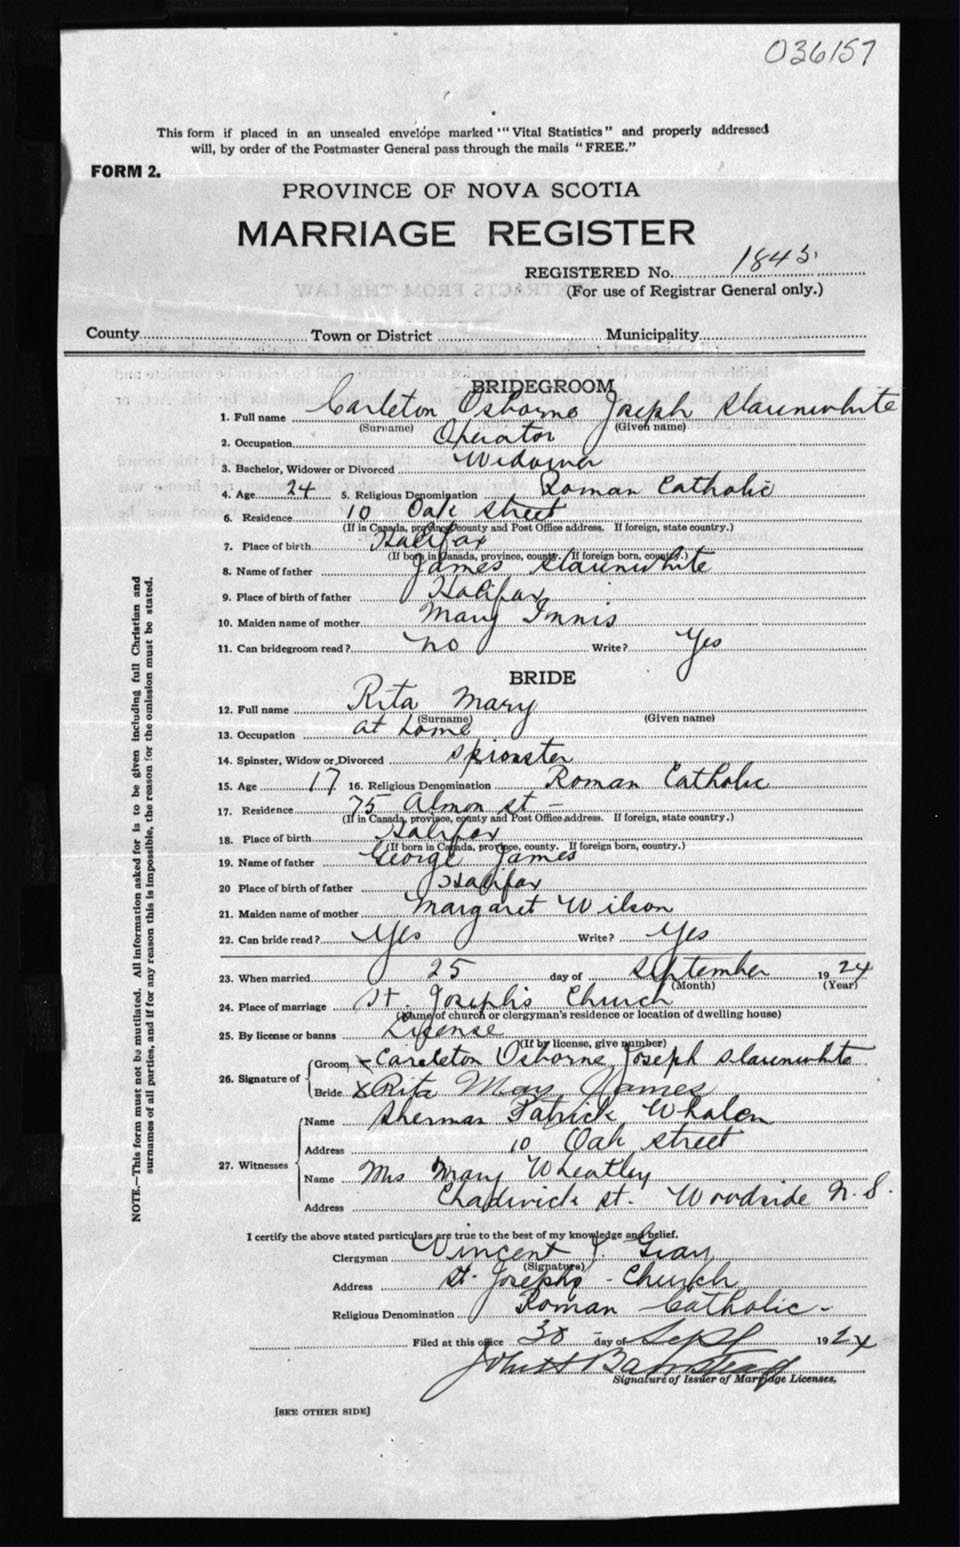 036157
This form if placed in an unsealed envelope marked "Vital Statistics" and properly addressed
will, by order of the Postmaster General pass through the mails "FREE."
FORM 2.
PROVINCE OF NOVA SCOTIA
MARRIAGE REGISTER
REGISTERED No. 1845
(For use of Registrar General only.)
County Town or District Municipality
BRIDEGROOM
1. Full name Carleton Osborne Joseph Slaunwhite
(Surname) (Given name)
2. Occupation Operator
3. Bachelor, Widower or Divorced Widower
4. Age 24 5. Religious Denomination Roman Catholic
6. Residence 10 Oak Street
(If in Canada, province, county and Post Office address. If foreign, state country.)
7. Place of birth Halifax
(If born in Canada, province, county. If foreign born, country.)
8. Name of father James Slaunwhite
9. Place of birth of father Halifax
10. Maiden name of mother Mary Innis
11. Can bridegroom read? no Write? Yes
BRIDE
12. Full name Rita Mary
(Surname) (Given name)
13. Occupation at home
14. Spinster, Widow or Divorced Spinster
15. Age 17 16. Religious Denomination Roman Catholic
17. Residence 75 Almon st -
(If in Canada, province, county and Post Office address. If foreign, state country.)
18. Place of birth Halifax
(If born in Canada, province, county. If foreign born, country.)
19. Name of father George James
20 Place of birth of father Halifax
21. Maiden name of mother Margaret Wilson
22. Can bride read? Yes Write? Yes
23. When married 25 day of September 1924
(Month) (Year)
24. Place of marriage St. Joseph's Church
(Name of church or clergyman's residence or location of dwelling house)
25. By license or banns License
(If by license, give number)
26. Signature of Groom x Carleton Osborne Joseph Slaunwhite
Bride x Rita May James
27. Witnesses Name Sherman Patrick Whalen
Address 10 Oak Street
Name Mrs Mary Wheatley
Address Chadwick st. Woodside N.S.
I certify the above stated particulars are true to the best of my knowledge and belief.
Clergyman Vincent J. Gray
(Signature)
Address St. Josephs - Church
Religious Denomination Roman Catholic -
Filed at this office 30 day of Sept 1924
Signature of Issuer of Marriage Licenses.
[SEE OTHER SIDE]
NOTE.—This form must not be mutilated. All information asked for is to be given including full Christian and
surnames of all parties, and if for any reason this is impossible, the reason for the omission must be stated.